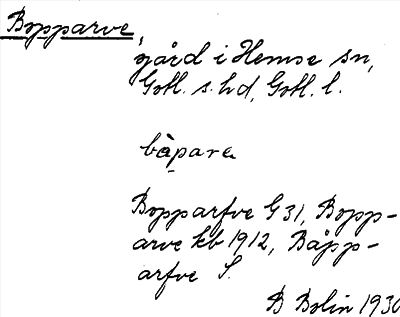 Bopparve,
gård i Hemse sn,
Gotl. s. hd, Gotl. l.
båpara
Bopparfve G 31, Bopp-
arve kb 1912, Båpp-
arfve S.
B Bolin 1930